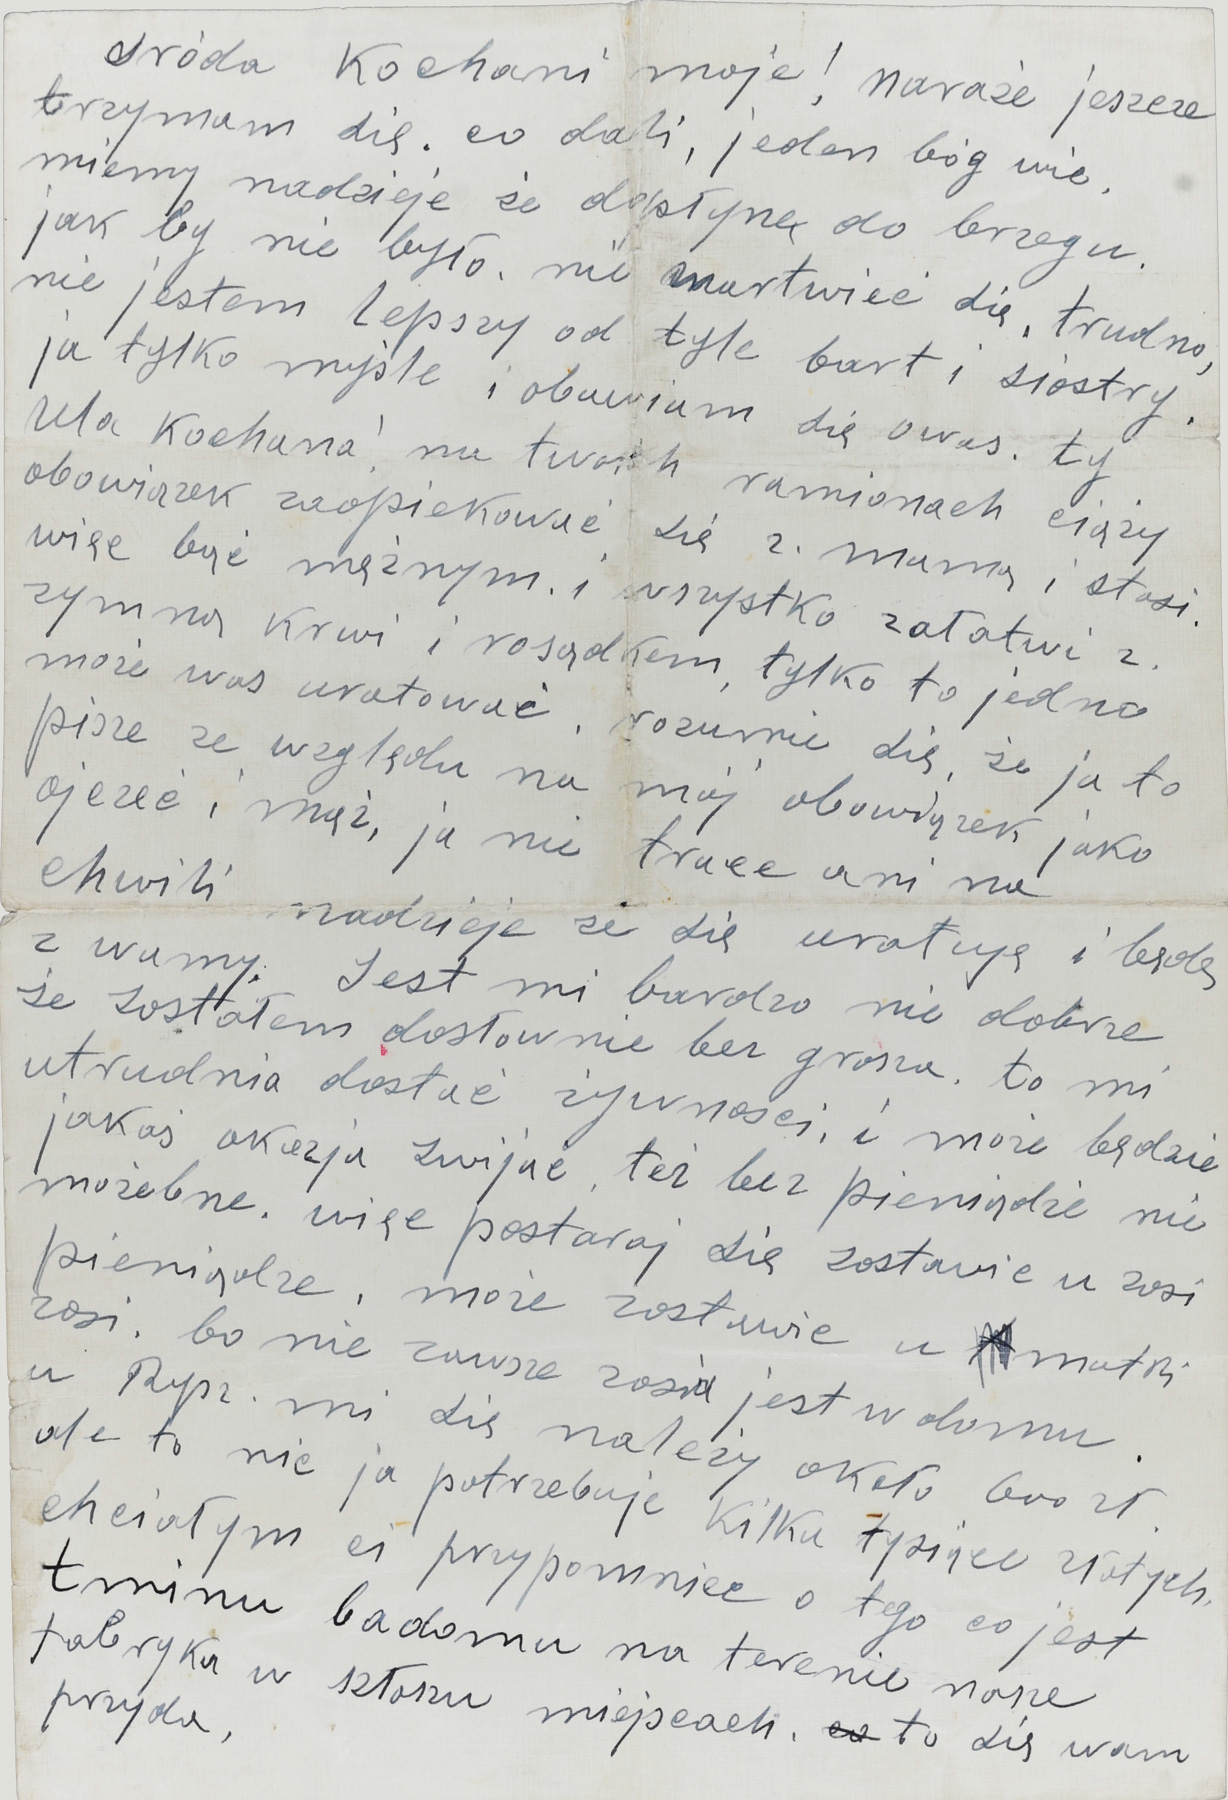 środa Kochani moje! naraże jeszcze
trzymam się. co dali, jeden bóg wie.
miemy nadzieje że dopłynę do brzegu.
jak by nie było. nie martwieć się, trudno,
nie jestem lepszy od tyle bart i siostry.
ja tylko myśle i obawiam się owas. ty
Ula Kochana! na twoich ramionach ciąży
obowiązek zaopiekować się z. mamą i stasi.
więc być mężnym. i wszystko załatwi z.
zymną krwi i rosądkem, tylko to jedno
może was uratować. rozumie się, że ja to
pisze ze względu na mój obowiązek jako
ojczeć i mąż, ja nie trace ani na
chwili nadzieje że się uratuję i będę
z wamy. Jest mi bardzo nie dobrze
że zostałem dosłownie bez grosza. to mi
utrudnia dostać żywnosci, i może będzie
jakaś okazja zwijać, też bez pieniądże nie
możebne. więc postaraj się zostawic u zosi
pieniądze, może zostawic u matki
zosi. bo nie zawsze zosia jest w domu.
u Rysz. mi się należy około 600 zł.
ale to nie ja potrzebuje kilku tysięce złotych.
chciałym ci przypomniec o tego co jest
tminu badomu na terenie nasze
fabryka w kłoszu miejscach. to się wam
przyda,